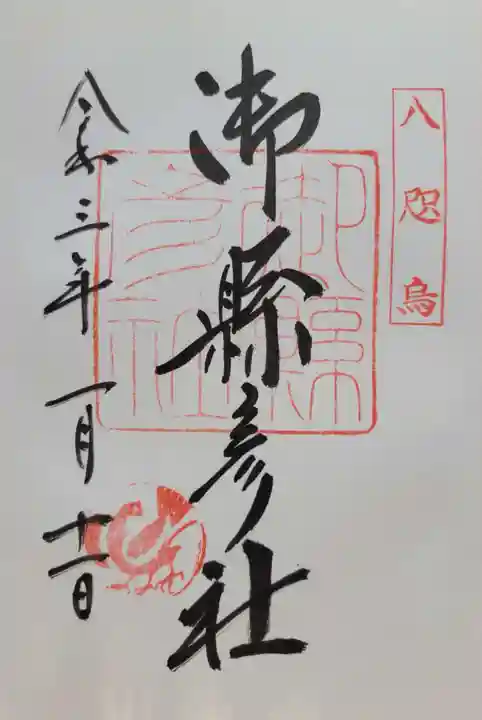 八咫烏
御縣彦社
御縣彦社
令和三年一月十一日